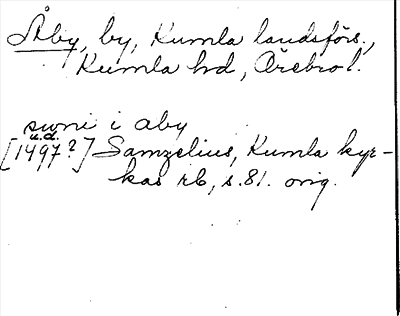 Åby, by, Kumla landsförs.,
Kumla hd, Örebro l.
swni i aby
u.d.
[1497?] Samzelius, Kumla kyr-
kas rb, s.81. orig.